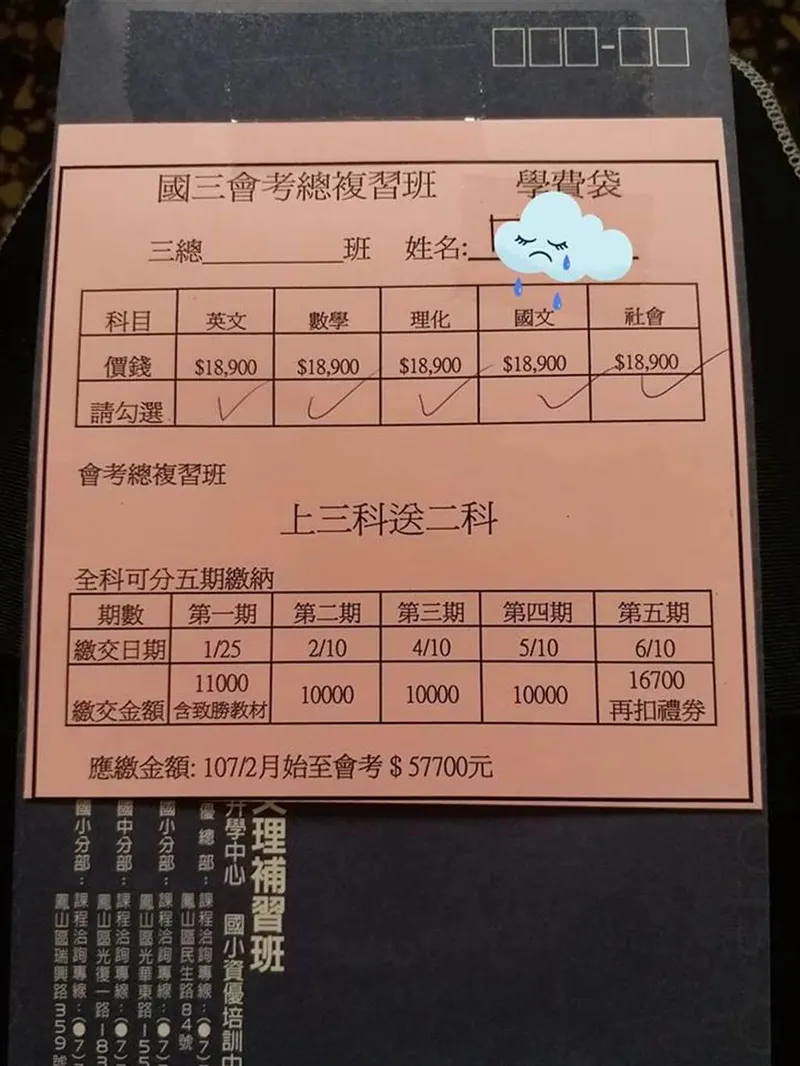 國三會考總複習班 學費袋
三總__________班 姓名:
科目 英文 數學 理化 國文 社會
價錢 $18,900 $18,900 $18,900 $18,900 $18,900
請勾選 ✓ ✓ ✓ ✓ ✓
會考總複習班
上三科送二科
全科可分五期繳納
期數 第一期 第二期 第三期 第四期 第五期
繳交日期 1/25 2/10 4/10 5/10 6/10
繳交金額 11000 10000 10000 10000 16700
含致勝教材 再扣禮券
應繳金額: 107/2月始至會考 $ 57700元
文理補習班
升學中心 國小資優培訓中
優總部:課程洽詢專線:(●7)
鳳山區民生路84號
國小分部:課程洽詢專線:(●7)
鳳山區光華東路155
國中分部:課程洽詢專線:(●7)
鳳山區光復一路183
國小分部:課程洽詢專線:(●7)7
鳳山區瑞興路359號